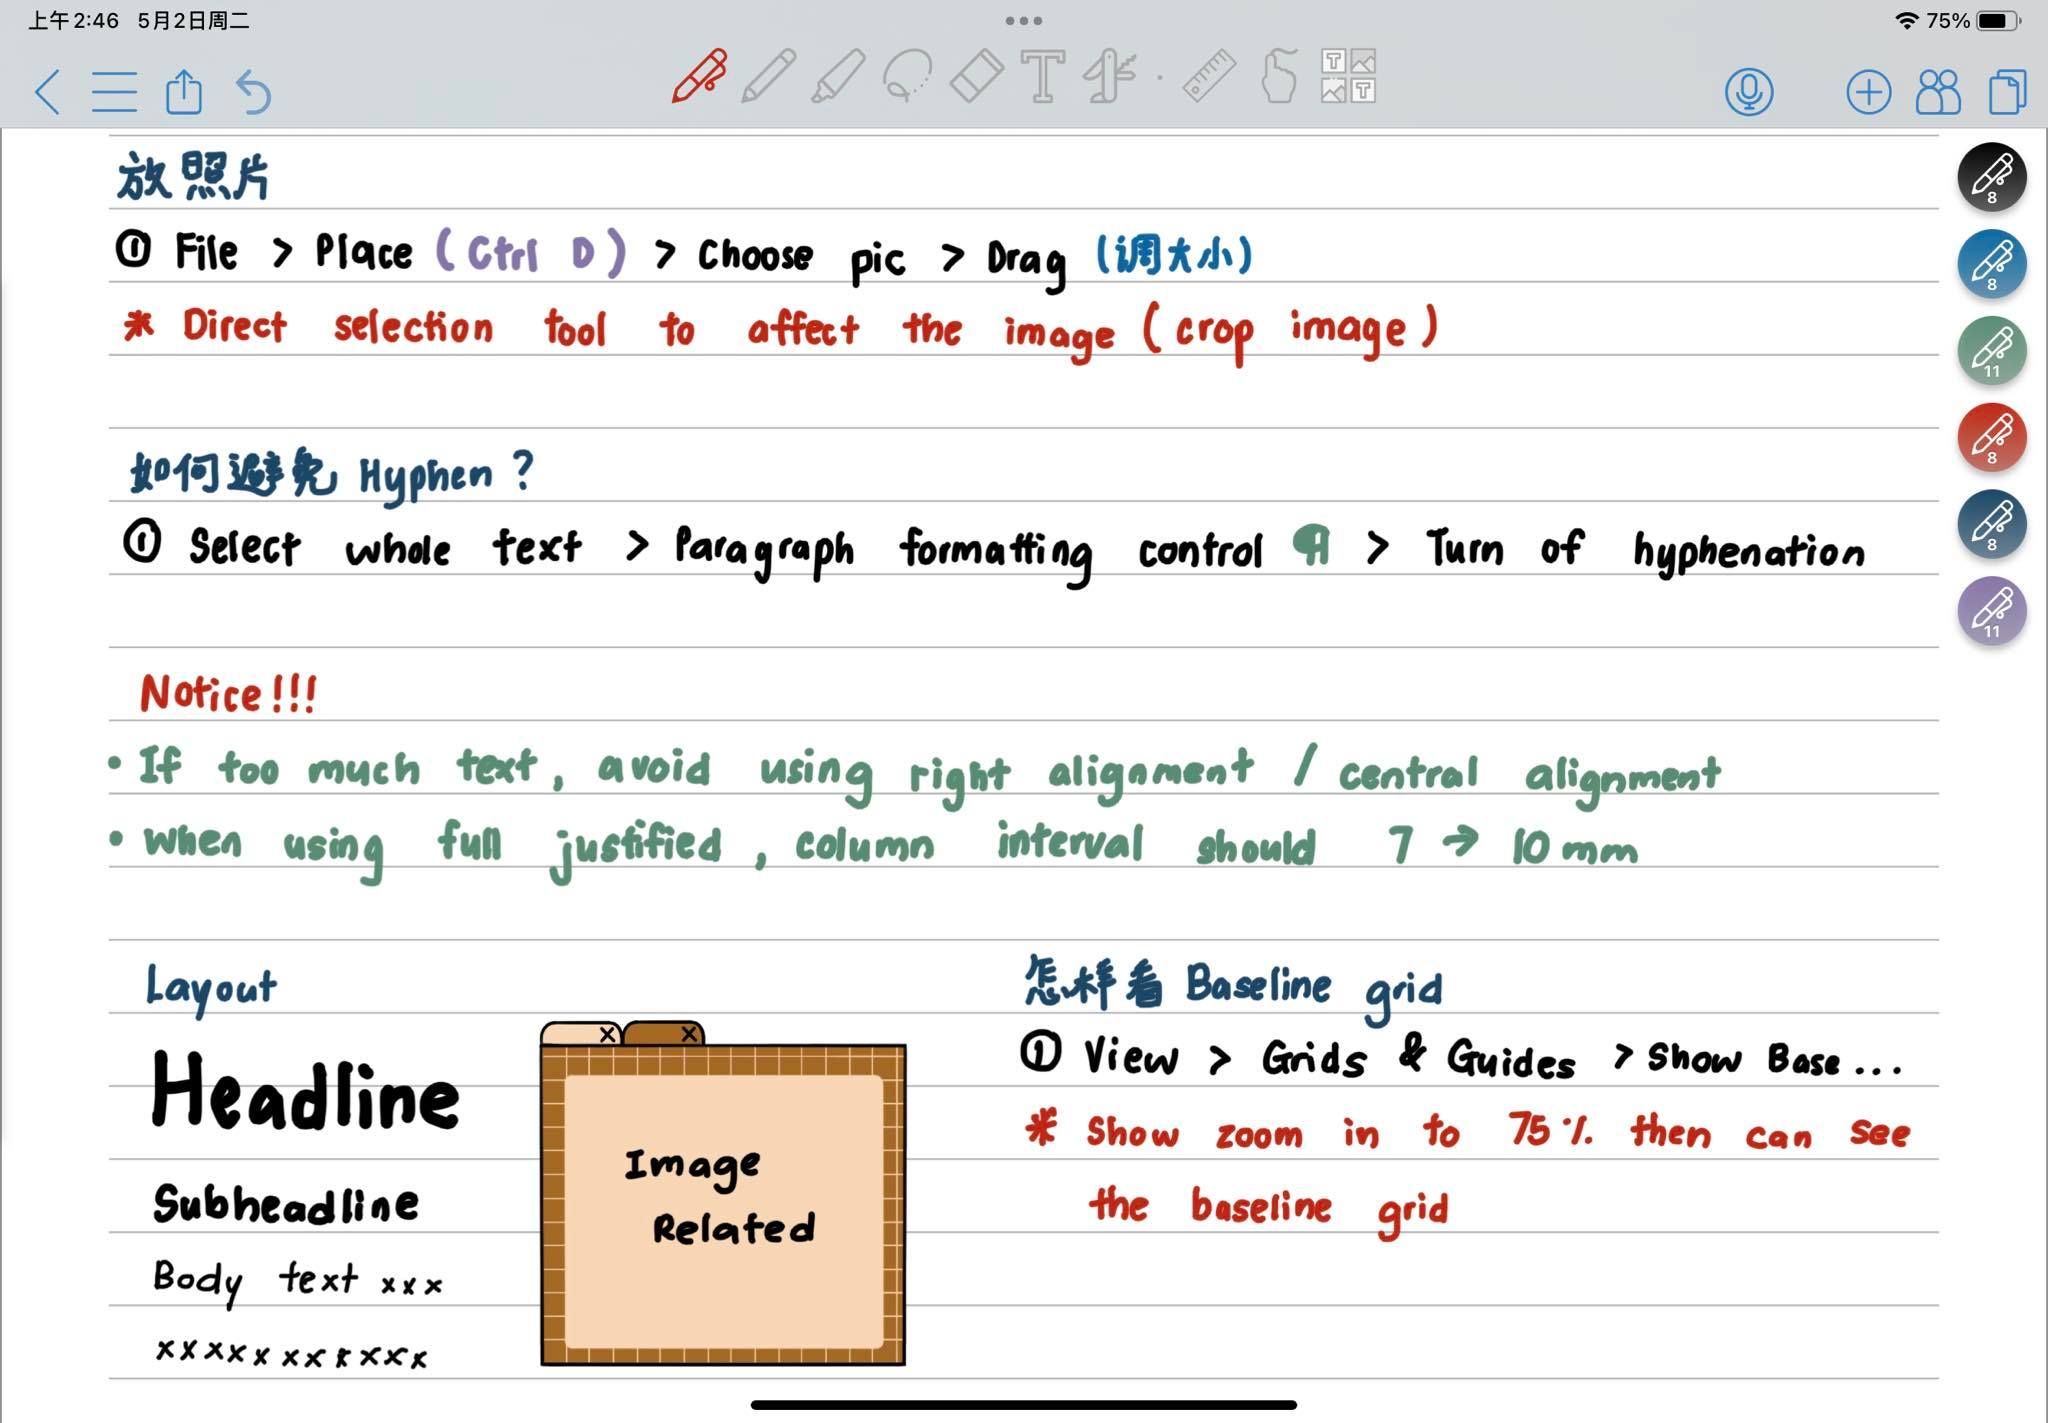 上午2:46 5月2日周二
75%
放照片
① File > Place (Ctrl D) > Choose pic > Drag (调大小)
* Direct selection tool to affect the image (crop image)
如何避免 Hyphen ?
① Select whole text > Paragraph formatting control ¶ > Turn of hyphenation
Notice!!!
• If too much text, avoid using right alignment / central alignment
• When using full justified, column interval should 7 → 10 mm
Layout
Headline
Subheadline
Body text xxx
xxxxx xxxxxx
Image
Related
怎样看 Baseline grid
① View > Grids & Guides > Show Base...
* Show zoom in to 75% then can see
the baseline grid
8
8
11
8
8
11